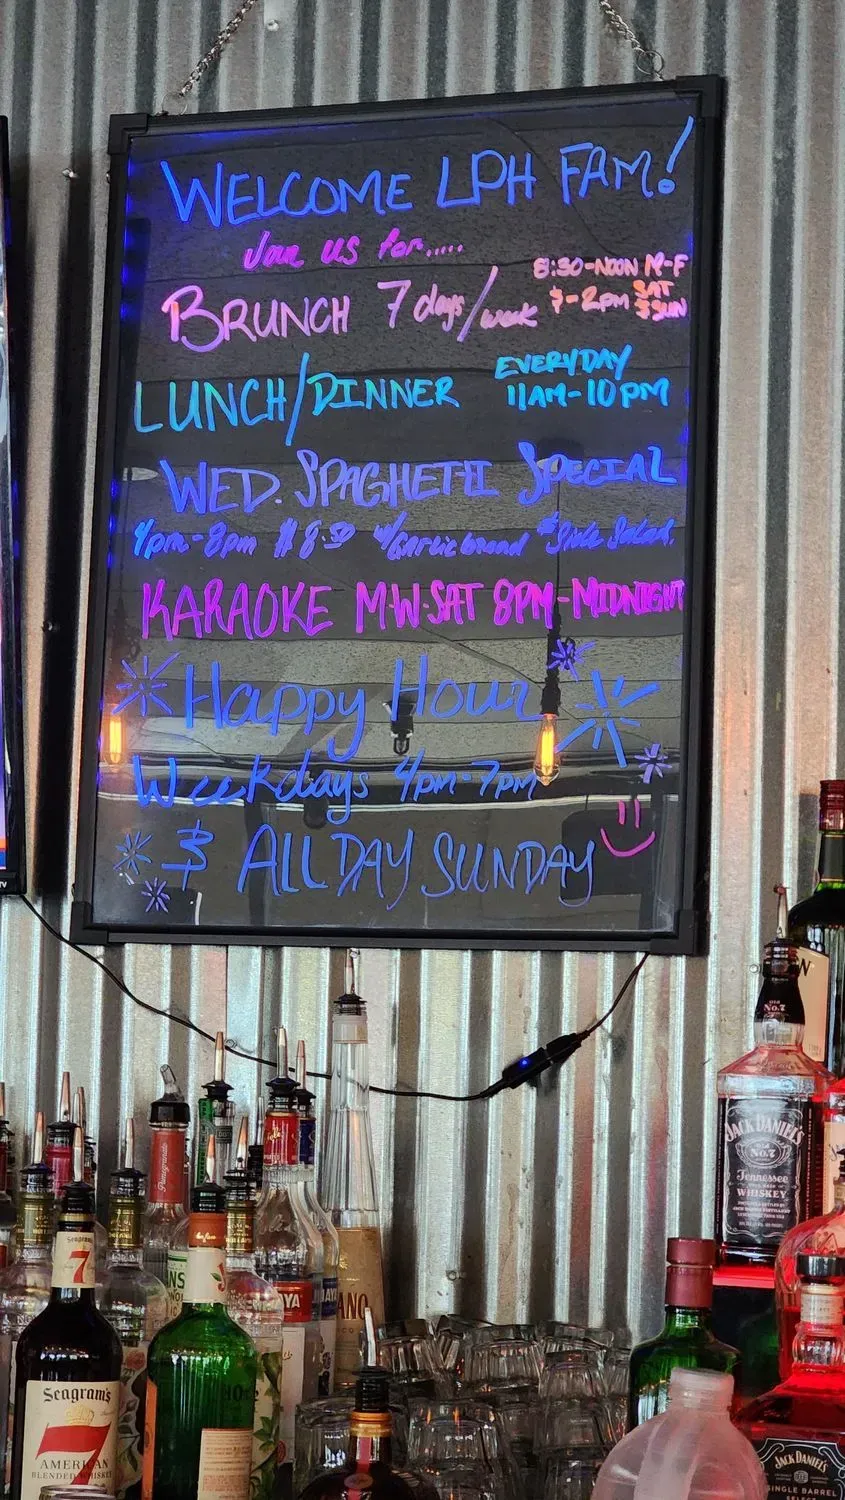 WELCOME LPH FAM!
Join us for.....
BRUNCH 7 days/week
8:30-NOON M-F
-2pm SAT
$ SUN
LUNCH/DINNER
EVERYDAY
11AM-10PM
WED. SPAGHETTI SPECIAL
4pm-8pm $8.50 w/Garlic bread $ Side Salad.
KARAOKE M-W-SAT 8PM-MIDNIGHT
Happy Hour
Weekdays 4pm-7pm
$ ALL DAY SUNDAY
Seagram's
7
Seagram's
7
AMERICAN
BLENDED WHISKEY
Pomegranate
JACK DANIEL'S
OLD
No.7
Tennessee
WHISKEY
OLD
No.7
JACK DANIEL'S
SINGLE BARREL